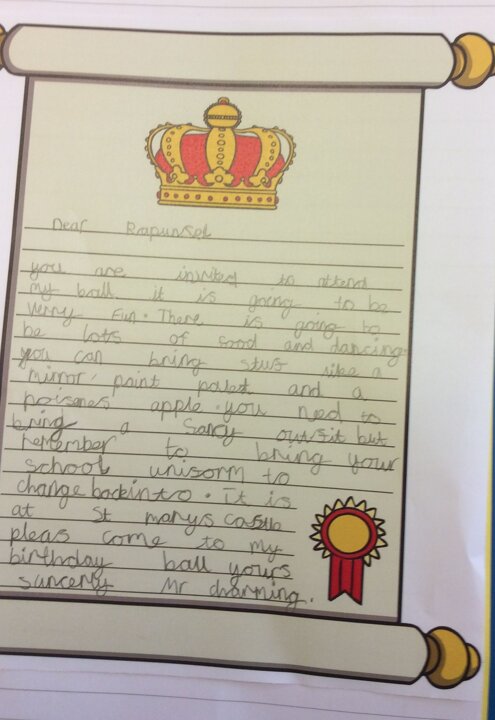 Dear Rapunsel
you are invited to attend
my ball. it is going to be
verry fun. There is going to
be lots of food and dancing.
you can bring stuf like a
mirror, paint palet and a
poisenes apple. you need to
bring a fancy outfit but
remember to bring your
school uniform to
change back into. It is
at St marys
pleas come to my
birthday ball yours
suncerly Mr charming.